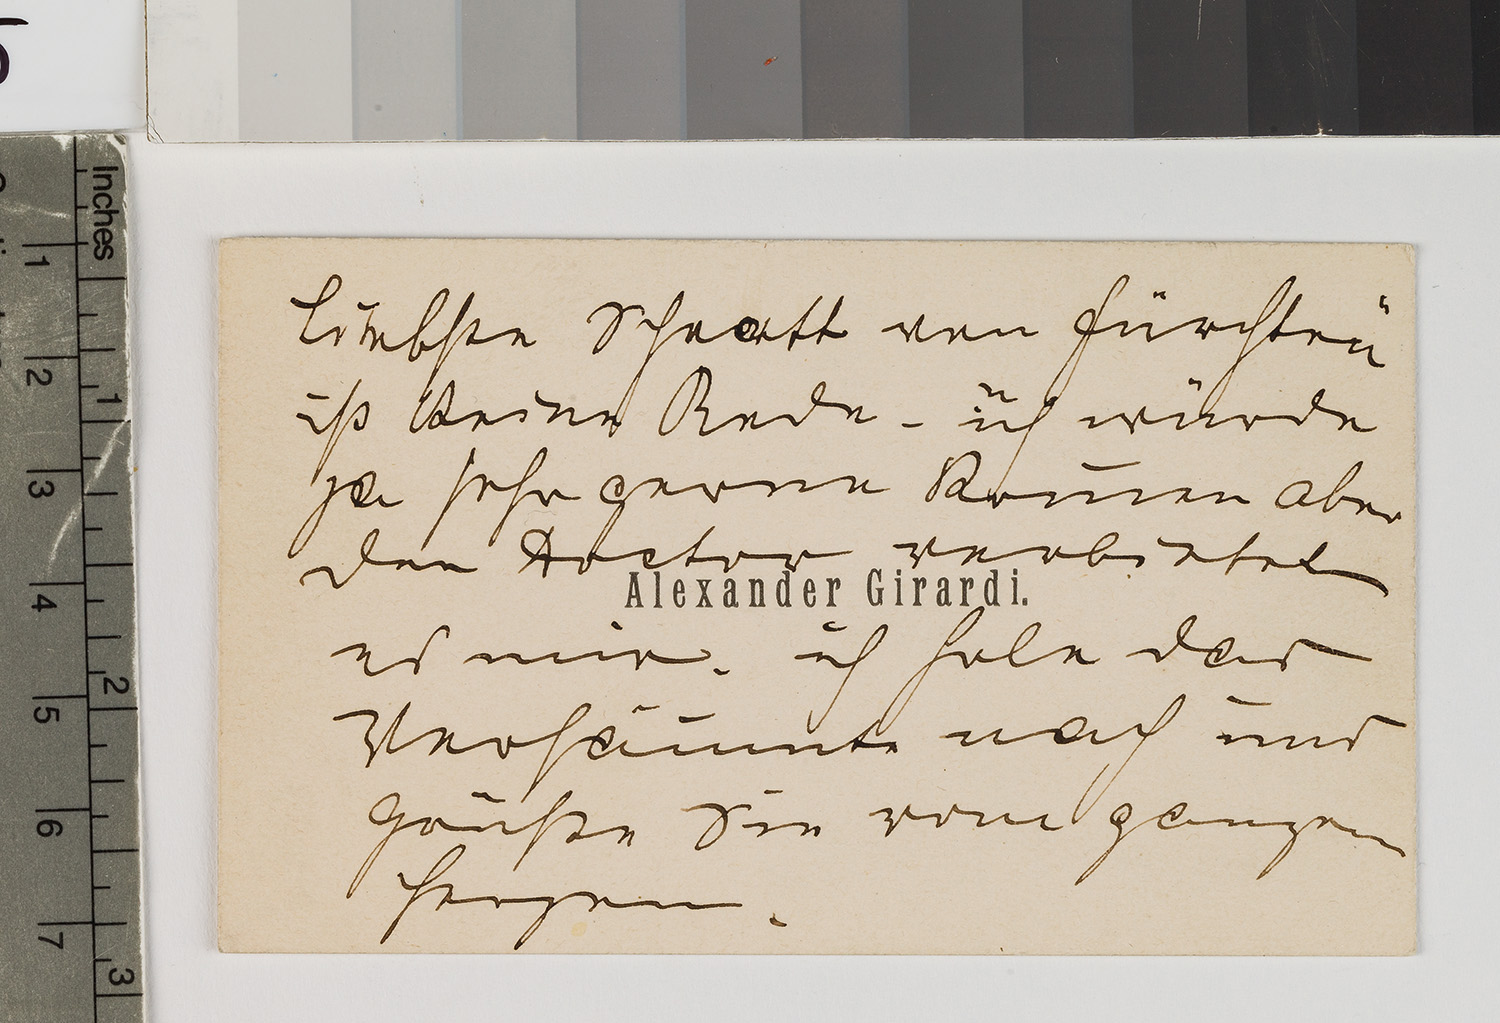 Liebste Schratt von fürchten
ist keine Rede - ich würde
ja sehr gerne kommen aber
der Doctor verbietet
Alexander Girardi.
es mir. ich hole das
Versäumte nach und
grüße Sie vom ganzen
Herzen.
Inches
1
2
3
4
5
6
7
1
2
3